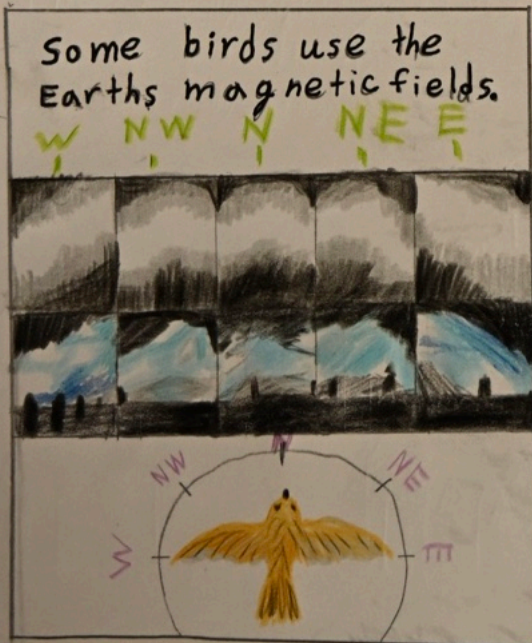 Some birds use the
Earths magnetic fields.
W NW N NE E
N
NW NE
W E